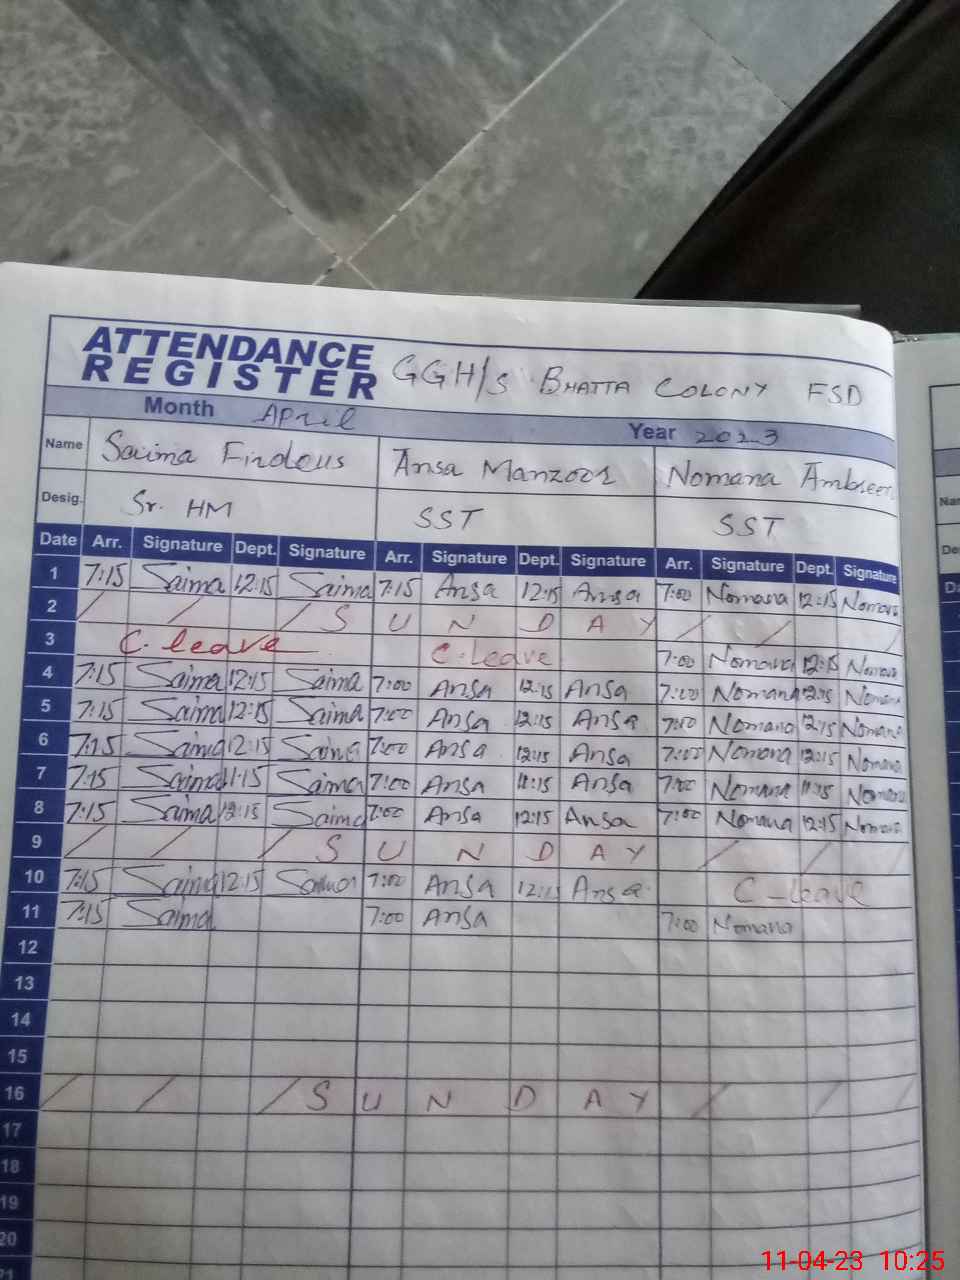 ATTENDANCE
REGISTER GGH/S BHATTA COLONY FSD
Month April Year 2023
Name Saima Firdous Ansa Manzoor Nomana Ambreen
Desig. Sr. HM SST SST
Date Arr. Signature Dept. Signature Arr. Signature Dept. Signature Arr. Signature Dept. Signature
1 7:15 Saima 12:15 Saima 7:15 Ansa 12:15 Ansa 7:00 Nomana 12:15 Nomana
2 / / / S U N D A Y / / /
3 C. leave C-leave 7:00 Nomana 12:15 Nomana
4 7:15 Saima 12:15 Saima 7:00 Ansa 12:15 Ansa 7:00 Nomana 12:15 Nomana
5 7:15 Saima 12:15 Saima 7:00 Ansa 12:15 Ansa 7:00 Nomana 12:15 Nomana
6 7:15 Saima 12:15 Saima 7:00 Ansa 12:15 Ansa 7:00 Nomana 12:15 Nomana
7 7:15 Saima 11:15 Saima 7:00 Ansa 11:15 Ansa 7:00 Nomana 11:15 Nomana
8 7:15 Saima 12:15 Saima 7:00 Ansa 12:15 Ansa 7:00 Nomana 12:15 Nomana
9 / / / S U N D A Y / / /
10 7:15 Saima 12:15 Saima 7:00 Ansa 12:15 Ansa C-leave
11 7:15 Saima 7:00 Ansa 7:00 Nomana
12
13
14
15
16 / / / S U N D A Y / / /
17
18
19
20
21
11-04-23 10:25